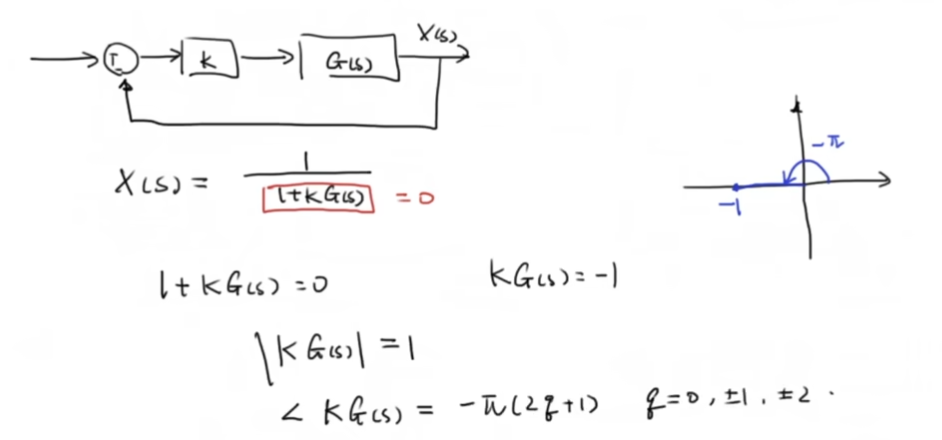 X(s)
k
G(s)
-π
X(s) = 1 / 1+kG(s) = 0
-1
1+kG(s)=0 kG(s)=-1
|kG(s)| = 1
∠ kG(s) = -π(2q+1) q=0, ±1, ±2 .